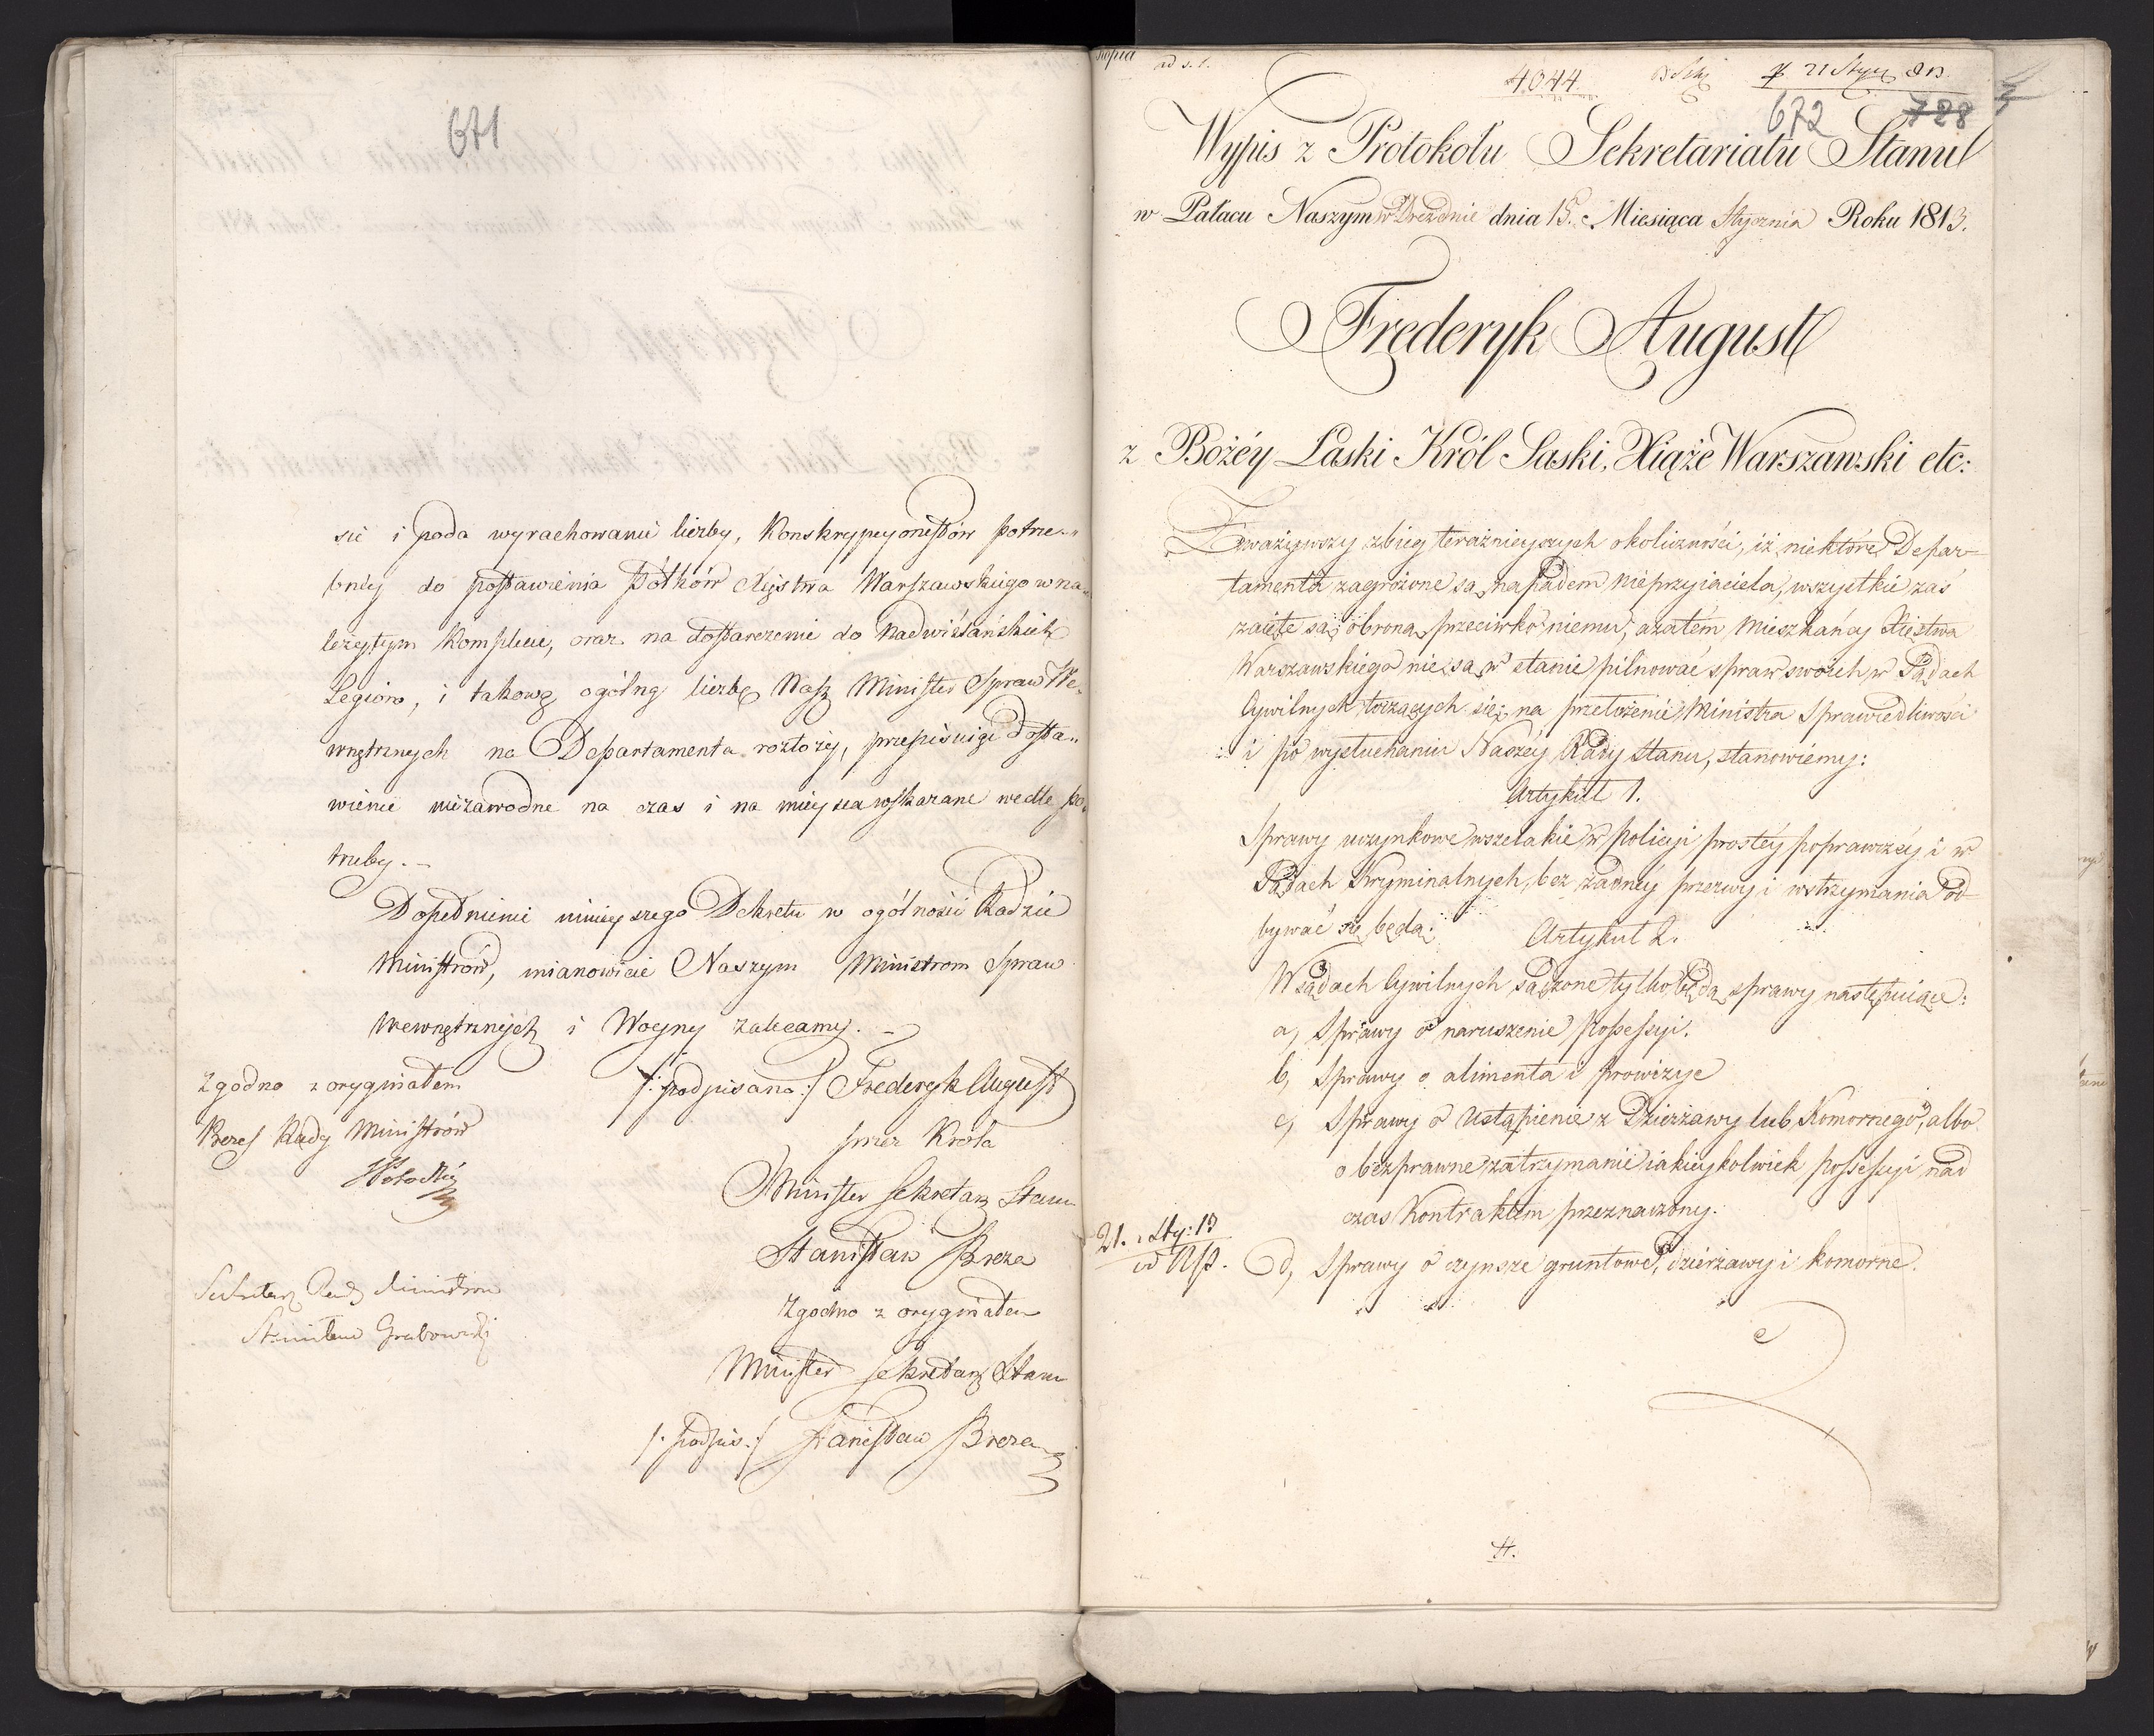 671
sie i poda wyrachowanie liczby, Konskrypcyonistów potrze-
bney do postawienia Półków Xięstwa Warszawskiego w na-
leżytym Komplecie, oraz na dostarczenie do Nadwiślańskich
Legiów, i takową ogólną liczbę Nasz Minister Spraw We-
wnętrznych na Departamenta rozłoży, przepisuiąc dosta-
wienie niezawodne na czas i na mieysca wskazane wedle po-
trzeby. —
Dopełnienie ninieyszego Dekretu w ogólności Radzie
Ministrów, mianowicie Naszym Ministrom Spraw
Wewnętrznych i Woyny zalecamy. —
/: podpisano :/ Frederyk August
przez Króla
Minister Sekretarz Stanu
Stanisław Breza
Zgodno z oryginałem
Minister Sekretarz Stanu
/: podpis. :/ Stanisław Breza
Zgodno z oryginałem
Prezes Rady Ministrów
Sekretarz Rady Ministrów
Stanisław Grabowski
Kopia
ad s. 1.
4044.
21 Stycz 813
672
728
Wypis z Protokołu Sekretariatu Stanu
w Pałacu Naszym w Dreznie dnia 15. Miesiąca Stycznia Roku 1813.
Frederyk August
z Bożéy Łaski Król Saski, Xiąże Warszawski etc:
Zważywszy zbieg teraźnieyszych okoliczności, iż niektóre Depar-
tamenta zagrożone są napadem nieprzyiaciela, wszystkie zaś
zaięte są obroną przeciwko niemu, a zatém Mieszkańcy Xięstwa
Warszawskiego nie są w stanie pilnować spraw swoich w Sądach
Cywilnych toczących się, na przełożenie Ministra Sprawiedliwości
i po wysłuchaniu Naszéy Rady Stanu, stanowiemy:
Artykuł 1.
Sprawy uczynkowe wszelakie w policyi prostéy poprawczéy i w
Sądach Kryminalnych, bez żadnéy przerwy i wstrzymania od-
bywać się będą.
Artykuł 2.
W sądach Cywilnych sądzone tylko będą sprawy następuiące:
a, Sprawy o naruszenie possessyi.
b, Sprawy o alimenta i prowizye
c, Sprawy o Ustąpienie z Dzierżawy lub Komornego, albo
o bezprawne zatrzymanie iakieykolwiek possessyi nad
czas Kontraktem przeznaczony.
21. Sty: 13
d, Sprawy o czynsze gruntowe, dzierżawy i komorne.